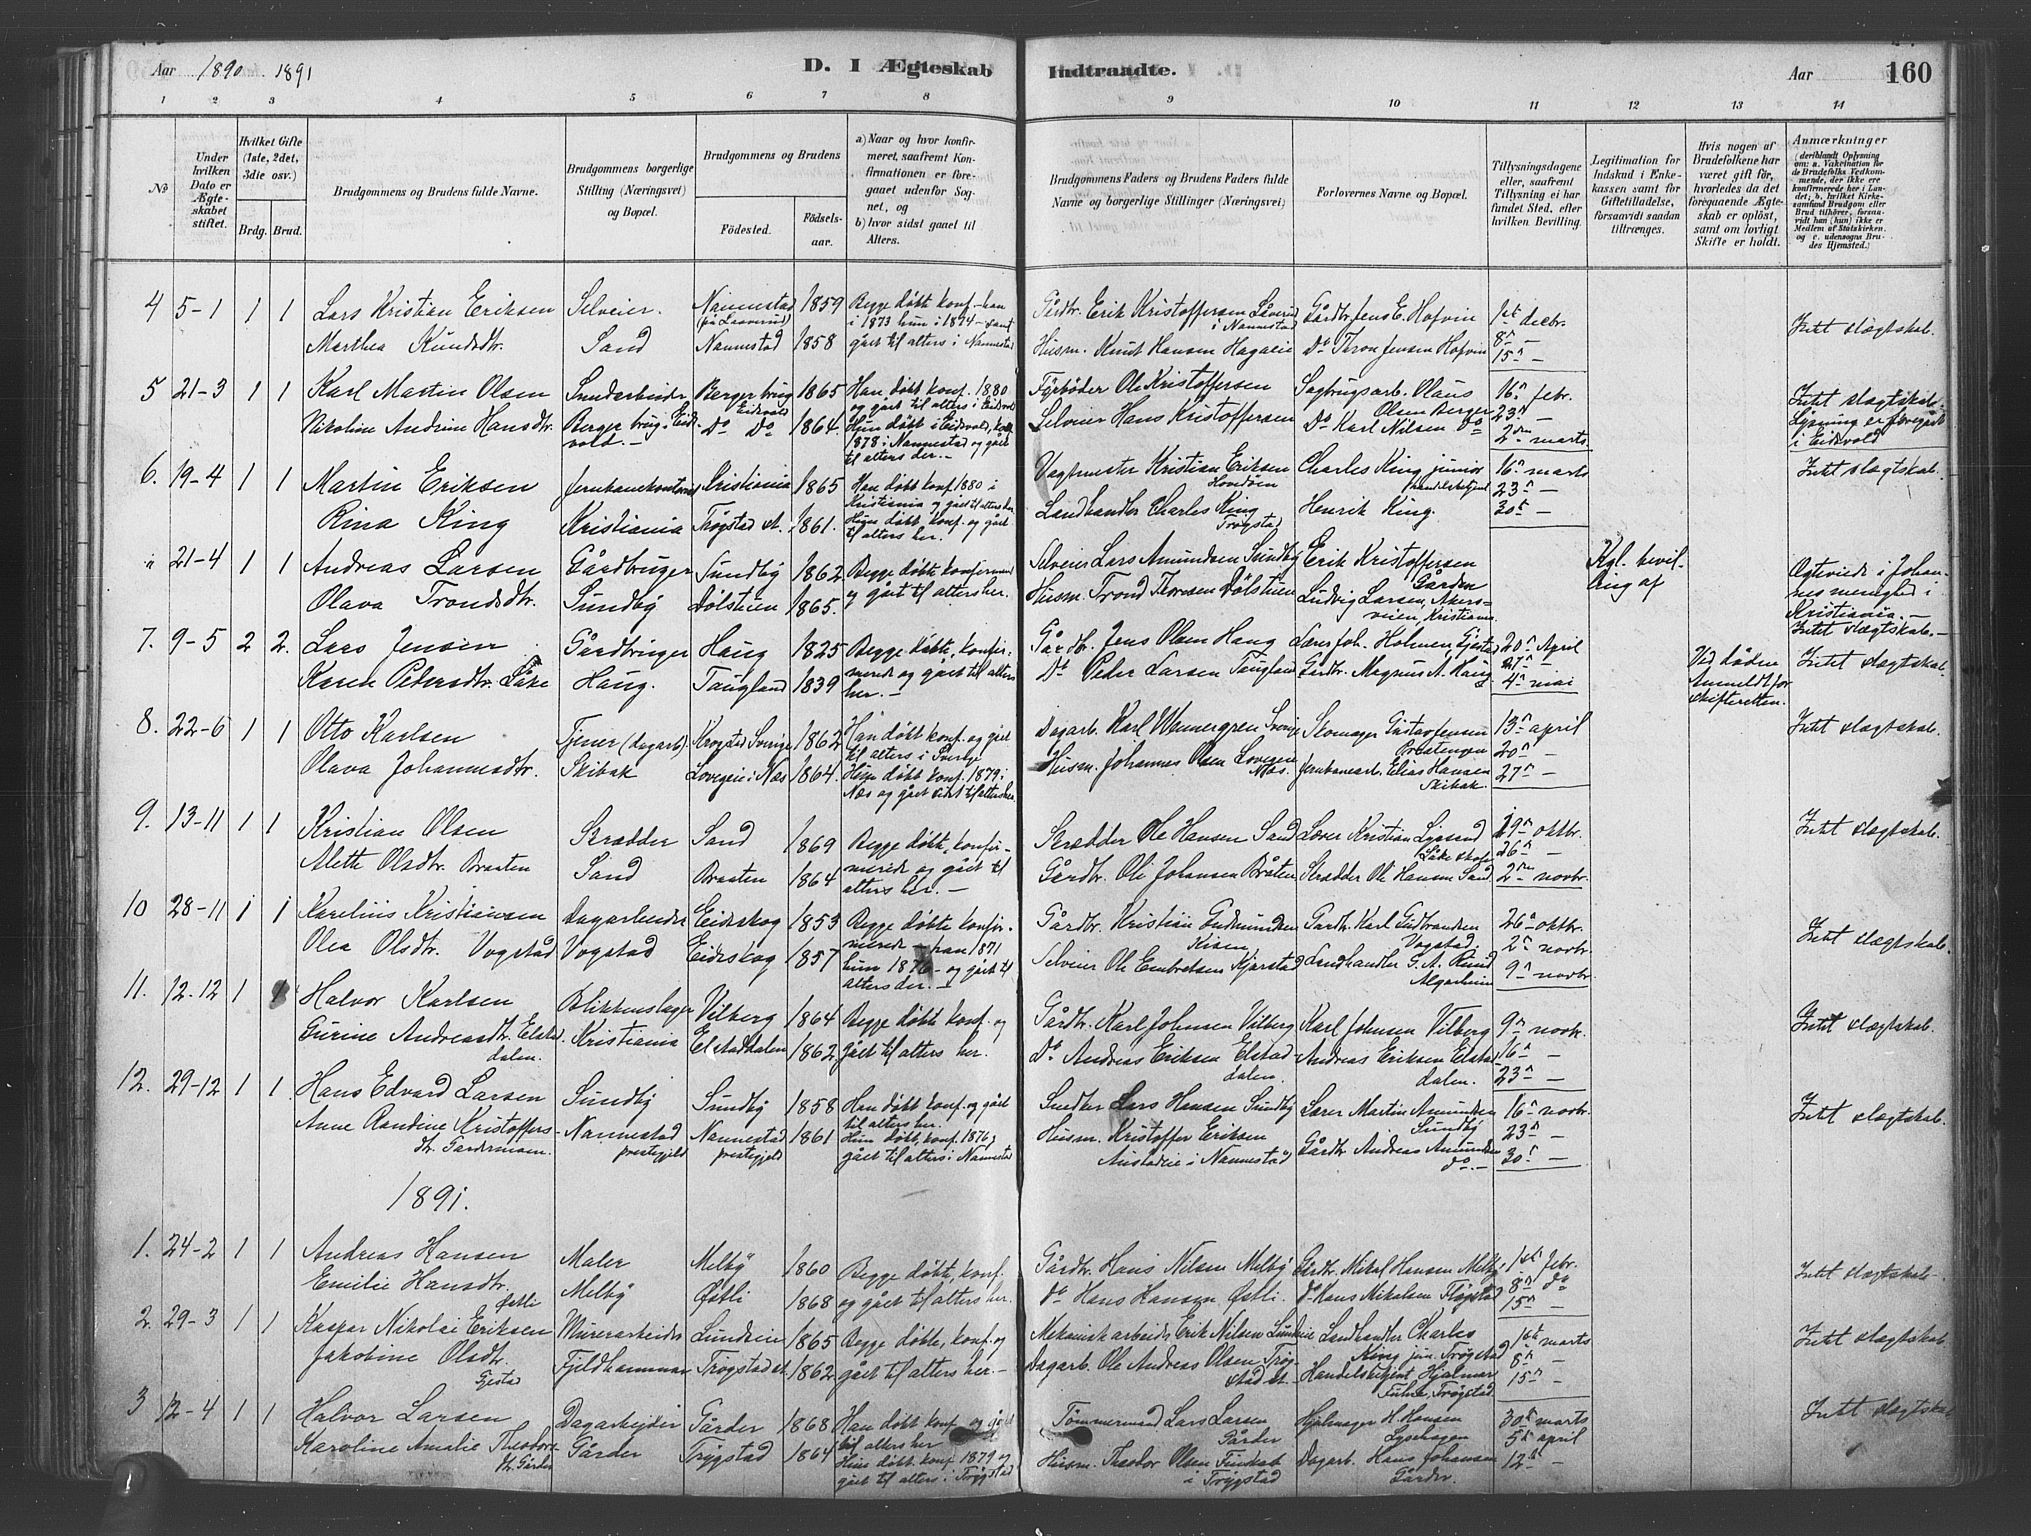 Aar 1890 1891
D. I Ægteskab
Indtraadte.
Aar
160
1 2 3 4 5 6 7 8 9 10 11 12 13 14
No
Under hvilken Dato er Ægteskabet stiftet.
Hvilket Gifte (1ste, 2det, 3die osv.)
Brdg. Brud.
Brudgommens og Brudens fulde Navne.
Brudgommens borgerlige Stilling (Næringsvei) og Bopæl.
Brudgommens og Brudens
Fødested.
Fødselsaar.
a) Naar og hvor konfirmeret, saafremt Konfirmationen er foregaaet udenfor Sognet, og
b) hvor sidst gaaet til Alters.
Brudgommens Faders og Brudens Faders fulde Navne og borgerlige Stillinger (Næringsvei)
Forlovernes Navne og Bopæl.
Tillysningsdagene eller, saafremt Tillysning ei har fundet Sted, efter hvilken Bevilling.
Legitimation for Indskud i Enkekassen samt for Giftetilladelse, forsaavidt saadan tiltrænges.
Hvis nogen af Brudefolkene har været gift, forhvorledes da det foregaaende Ægteskab er opløst, samt om lovligt Skifte er holdt.
Anmærkninger
4 5-1 1 1 Lars Kristian Eriksen Selveier Nannestad 1859 Begge døbte konf. han
i 1873 hun i 1874
Marthea Knudsdtr. Sand Nannestad 1858 gået til alters i Nannestad
Gårdbr. Erik Kristoffersen Låverud i Nannestad Gårdbr. Jens E. Hofvin 1ste decbr.
Husm. Knut Hansen Hagaeie Do Thron Jensen Hofvin 8n - 15n - Intet slægtskab.
5 21-3 1 1 Karl Martin Olsen Berger brug Eidsvold 1865 Han døbt konf. 1880
og gået til alters i Eidsvold
Nikoline Andrine Hansdtr. Berger brug i Eidsvold. Do Do 1864. Hun døbt i Eidsvold, konf.
1878 i Nannestad og gået
til alters der.
Fyrbøder Ole Kristoffersen Sagbrugsarb. Olaus Olsen Berger 16n febr. 23n -
Selveier Hans Kristoffersen Do Karl Nilsen Do 2den marts
Intet slægtskab.
Lysning er foregået
i Eidsvold
6. 19-4 1 1 Martin Eriksen Kristiania 1865 Han døbt konf 1880 i
Kristiania og gået til alters her
Rina King Kristiania Trøgstad st. 1861. Hun døbt, konf. og gået
til alters her.
Vagtmester Kristian Eriksen Charles King junior 16n marts
Landhandler Charles King Trøgstad Henrik King. 23n - 30te -
Intet slægtskab.
21-4 1 1 Andreas Larsen Gårdbruger Sundby 1862 Begge døbte, konfirmered
Olava Trondsdtr. Sundby Dølstuen 1865. og gået til alters her.
Selveier Lars Amundsen Sundby Erik Kristoffersen Gården
Husm. Trond Thoresen Dølstuen Ludvig Larsen, Akersveien, Kristiania
Kgl. bevilling af
Ægteviede i Johannes menighed i
Kristiania.
Intet slægtskab.
7. 9-5 2 2. Lars Jensen Gårdbruger Haug 1825 Begge døbte, konfirmerede og gået til alters
Karen Pedersdtr. Låke Haug. Taugland 1839 her.
Gårdbr. Jens Olsen Haug Lærer Joh. Holmen Gjestad 20n April 27n -
Do Peder Larsen Taugland Gårdbr. Magnus A. Haug 4n mai
Ved døden
Anmeldt for
skifteretten.
Intet slægtskab
8. 22-6 1 1 Otto Karlsen Tjener (dagarb.) Krogstad Sverige 1862 Han døbt konf. og gået
til alters i Sverige
Olava Johannesdtr. Skibak Lovegeie i Næs 1864. Hun døbt konf. 1879 i
Næs og gået sidst til alters her.
Dagarb. Karl Wennergren Sverige Skomager Gustaf Jensen Præstengen 13n april 20n -
Husm. Johannes Olsen Lovegen Næs. Jernbanearb. Elias Hansen Skibak. 27n -
Intet slægtskab.
9. 13-11 1 1 Kristian Olsen Skrædder Sand 1869 Begge døbte, konfirmerede og gået til
Aleth Olsdtr. Braaten Sand Braaten 1864 alters her.
Skrædder Ole Hansen Sand Lærer Kristian Lysand Låke skole 19n oktbr. 26n -
Gårdbr. Ole Johansen Bråten Skrædder Ole Hansen Sand 2den novbr.
Intet slægtskab.
10 28-11 1 1 Karelius Kristiansen Dagarbeider Eidskog 1853 Begge døbte, konfirmerede han 1871
Olea Olsdtr. Vogstad Vogstad Eidskog 1857 hun 1876 og gået til
alters der.
Gårdbr. Kristian Gudmundsen Gårdbr. Karl Gulbrandsen Vogstad. 26n oktbr. 2n novbr.
Selveier Ole Embretsen Kjærstad Landhandler G. A. Ruud Algarheim 9n novbr.
Intet slægtskab.
11. 12-12 1 1 Halvor Karlsen Blikkenslager Vilberg 1864 Begge døbte konf. og
Gurine Andreasdtr. Elstaddalen. Kristiania Elstaddalen 1862. gået til alters her.
Gårdbr. Karl Johnsen Vilberg Karl Johnsen Vilberg 9n novbr.
Do Andreas Eriksen Elstaddalen. Andreas Eriksen Elstaddalen. 16n - 23n -
Intet slægtskab.
12. 29-12 1 1 Hans Edvard Larsen Sundby Sundby 1858 Han døbt konf. og gået
til alters her.
Anne Randine Kristoffersdtr. Gardermoen. Nannestad prestegjeld Nannestad prestegjeld 1861 Hun døbt, konf. 1876 og
gået til alters i Nannestad
Snedker Lars Hansen Sundby Lærer Martin Amundsen Sundby 16n novbr. 23n -
Husm. Kristoffer Eriksen i Nannestad Gårdbr Andreas Amundsen do. 30n -
Intet slægtskab.
1891.
1. 24-2 1 1 Andreas Hansen Maler Melby 1860 Begge døbte, konf.
Emilie Hansdtr. Østli Melby Østli 1868 og gået til alters her.
Gårdbr. Hans Nilsen Melby Gårdbr. Mikal Hansen Melby 1ste febr.
Do Hans Hansen Østli. Do Hans Mikalsen Trøgstad 8n do 15n -
Intet slægtskab.
2. 29-3 1 1 Kaspar Nikolai Eriksen Murerarbeider Lundeie 1865 Begge døbte, konf. og
Jakobine Olsdtr. Gjestad Fjeldhammar Trøgstad st. 1862 gået til alters her.
Mekanisk arbeider Erik Nilsen Lundeie Landhandler Charles King jun. Trøgstad 1ste marts 8n -
Dagarb. Ole Andreas Olsen Trøgstad st. Handelsbetjent Hjalmar Trøgstad. 15n -
Intet slægtskab.
3 12-4 1 1 Halvor Larsen Dagarbeider Gårder 1868 Han døbt konf. og gået
til alters her
Karoline Amalie Theodorsdtr. Gårder Gårder Trøgstad 1864 Hun døbt, konf. 1879 og
gået til alters i Trøgstad
Tømmermand Lars Larsen Gårder Hjulmager H. Hansen Lysehagen 30te marts 5te april
Husm. Theodor Olsen i Trøgstad Dagarb. Hans Johansen Gårder. 12te -
Intet slægtskab